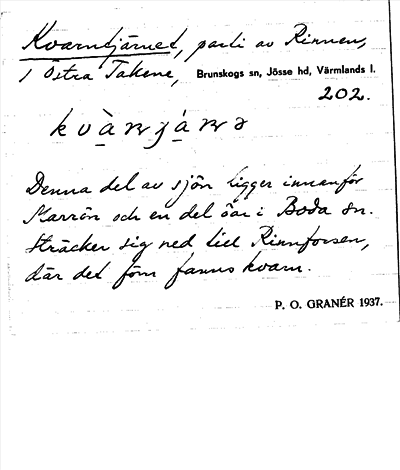 Kvarntjärnet, parti av Rinnen,
i Östra Takene, Brunskogs sn, Jösse hd, Värmlands l.
202.
kvà̱rnjá̱rnə
Denna del av sjön ligger innanför
Karrön och en del öar i Boda sn.
Sträcker sig ned till Rinnforsen,
där det förr fanns kvarn.
P. O. GRANÉR 1937.